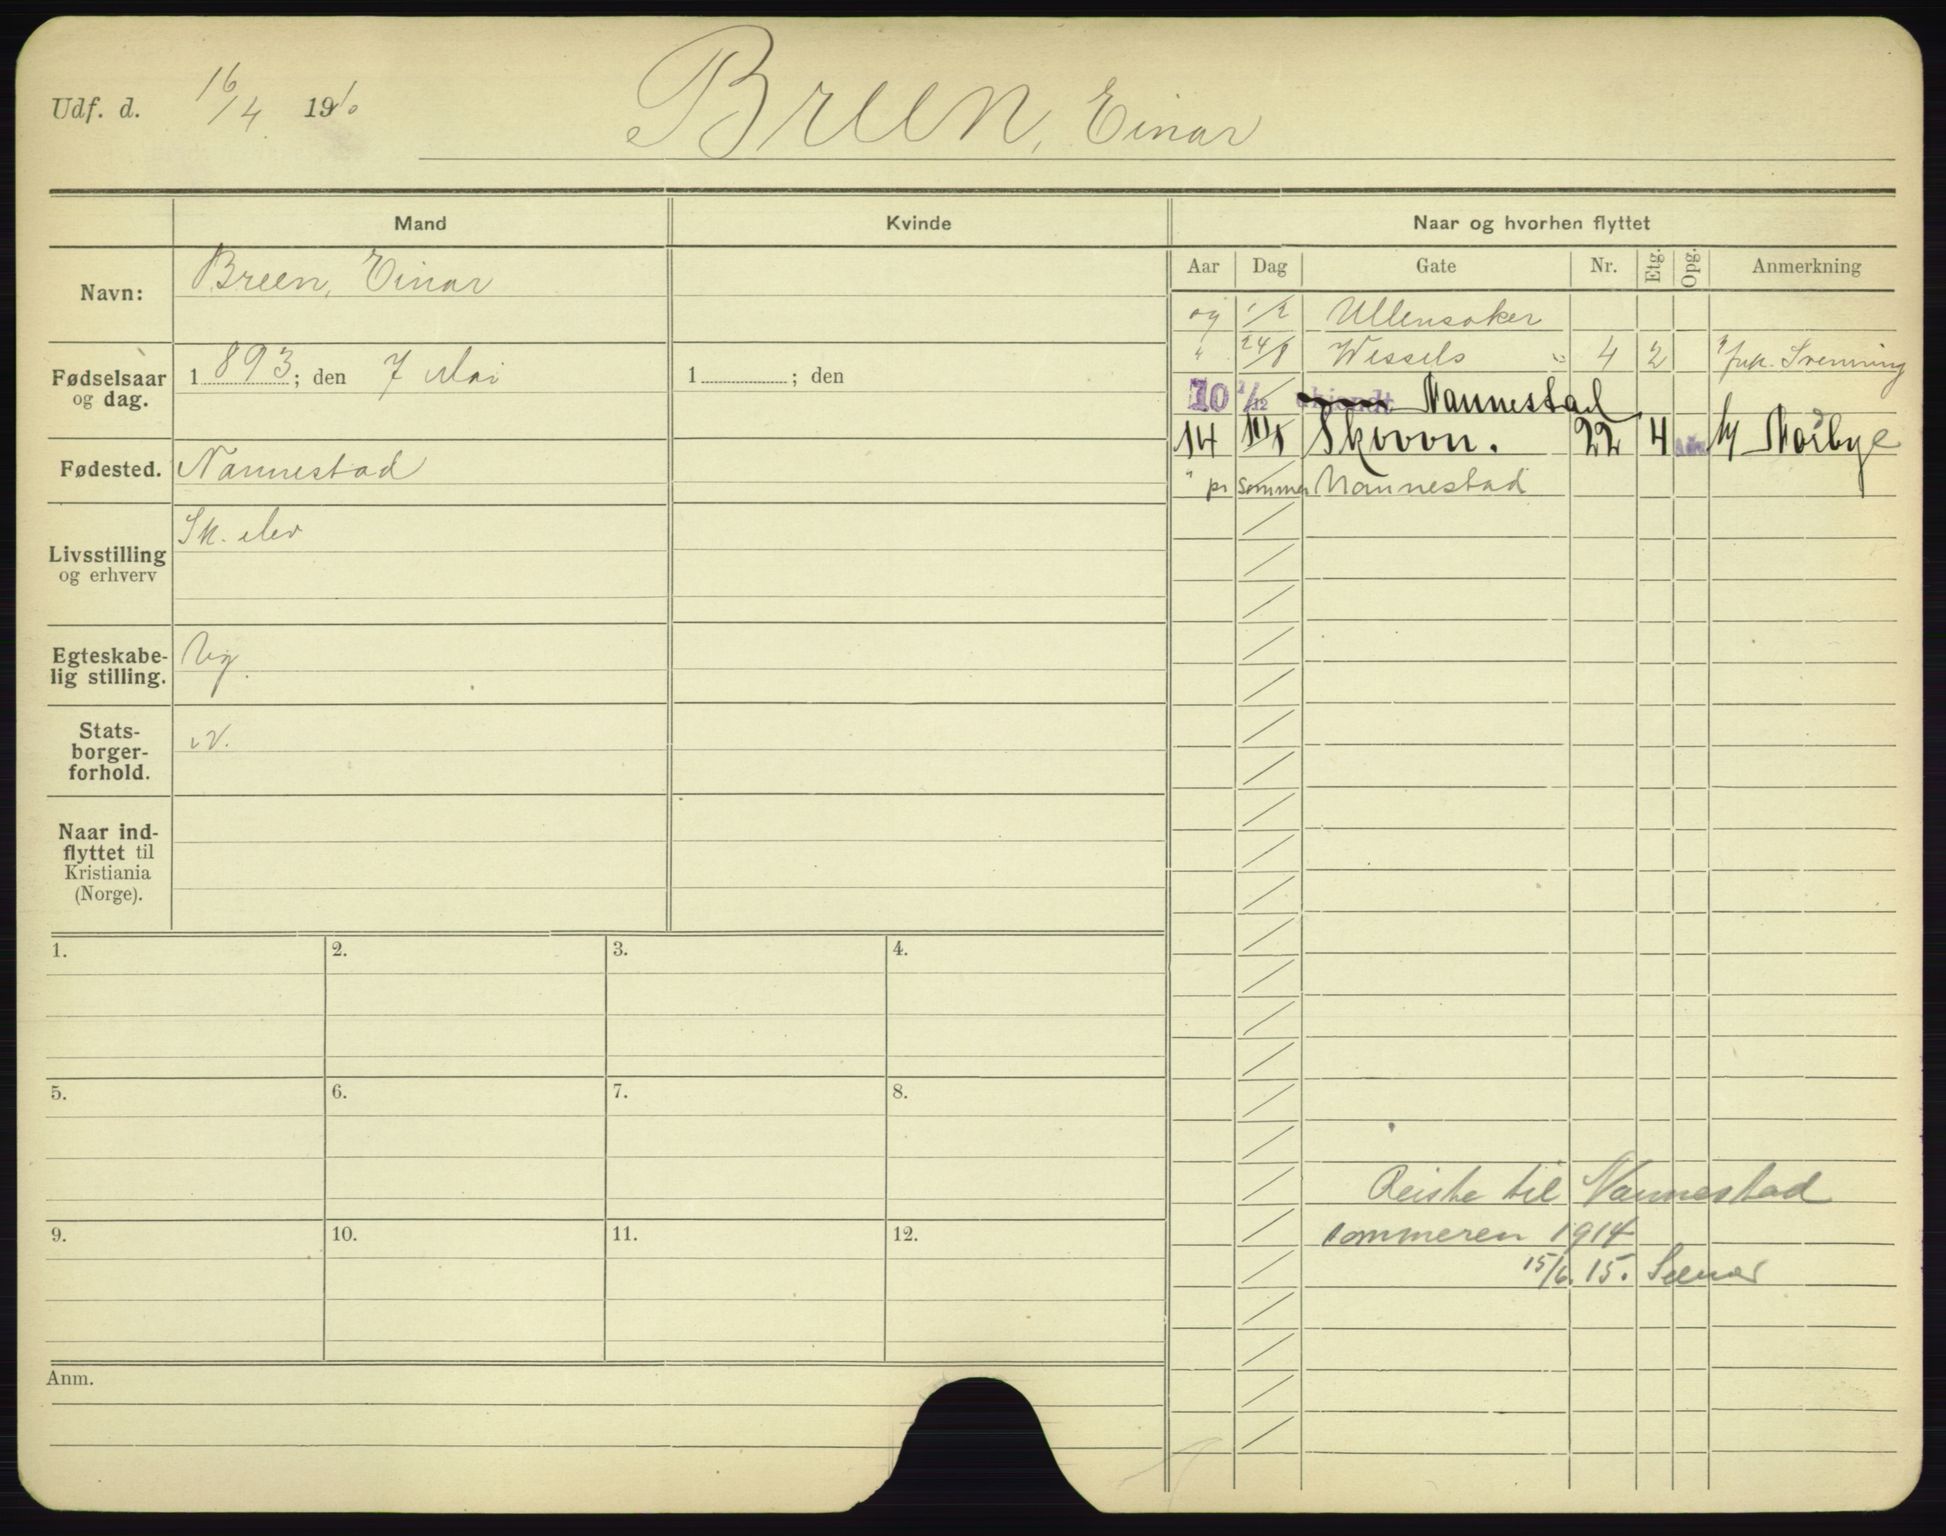 Udf. d. 16/4 1910
Breen, Einar
Mand
Kvinde
Naar og hvorhen flyttet
Navn:
Breen, Einar
Fødselsaar og dag.
1893; den 7 Mai
1 ; den
Fødested.
Nannestad
Livsstilling og erhverv
Sk. elev
Egteskabe-
lig stilling.
Ug.
Stats-
borger-
forhold.
N.
Naar ind-
flyttet til
Kristiania
(Norge).
Aar Dag Gate Nr. Etg. Opg. Anmerkning
09 1/2 Ullensaker
" 24/8 Wessels " 4 2 Svenning
10 1/12 Nannestad
14 Skovvn. 22 4 Moibye
" pr sommer Nannestad
1. 2. 3. 4.
5. 6. 7. 8.
9. 10. 11. 12.
Reiste til Nannestad
sommeren 1914
15/6. 15.
Anm.